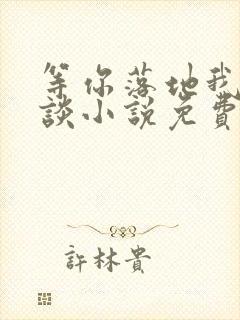 等你落地我
談小說免費
許林貴